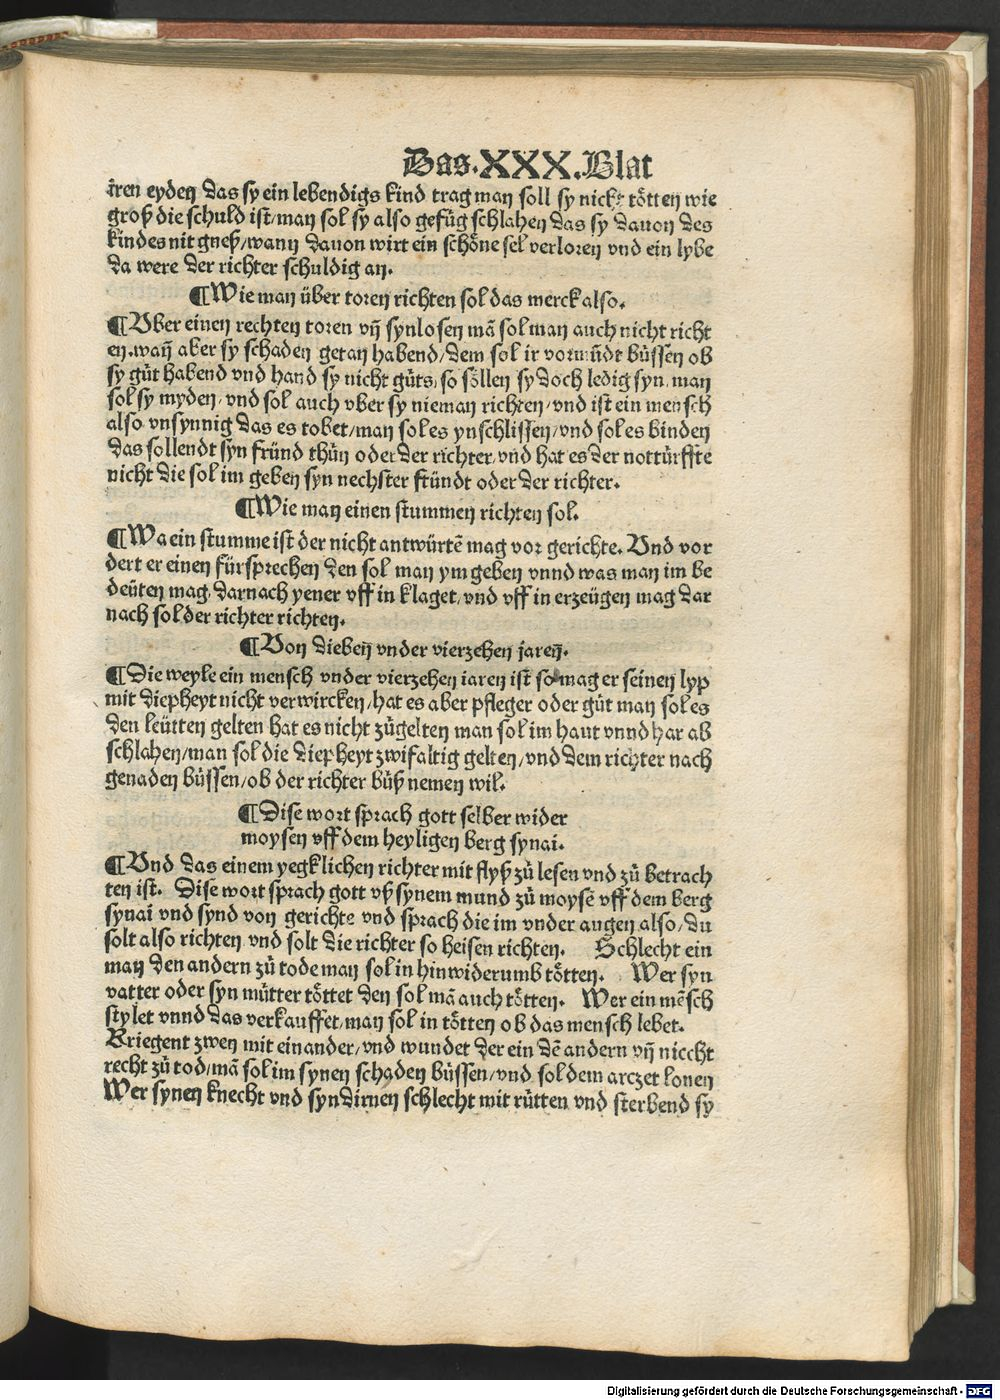 Das .XXX. Blat
iren eyden das sy ein lebendigs kind trag man soll sy nicht tötten wie
groß die schuld ist/man sol sy also gefüg schlahen das sy dauon des
kindes nit gneß/wann dauon wirt ein schöne sel verloren vnd ein lybe
da were der richter schuldig an.
¶Wie man über toren richten sol das merck also.
¶Vber einen rechten toren vñ synlosen mā sol man auch nicht richt
en.wañ aber sy schaden getan habend/dem sol ir vormūdt büssen ob
sy gůt habend vnd hand sy nicht gůts, so söllen sy doch ledig syn, man
sol sy myden/vnd sol auch vber sy nieman richten/vnd ist ein mensch
also vnsynnig das es tobet/man sol es ynschlissen/vnd sol es binden
das sollendt syn fründ thůn oder der richter, vnd hat es der nottürffte
nicht die sol im geben syn nechster fründt oder der richter.
¶Wie man einen stummen richten sol.
¶Wa ein stumme ist der nicht antwürtē mag vor gerichte. Vnd vor
dert er einen fürsprechen den sol man ym geben vnnd was man im be
deüten mag, darnach yener vff in klaget, vnd vff in erzeügen mag dar
nach sol der richter richten.
¶Von dieben vnder vierzehen jaren.
¶Die weyle ein mensch vnder vierzehen iaren ist so mag er seinen lyp
mit diepheyt nicht verwircken/hat es aber pfleger oder gůt man sol es
den leütten gelten hat es nicht zůgelten man sol im haut vnnd har ab
schlahen/man sol die diepheyt zwifaltig gelten/vnd dem richter nach
genaden büssen/ob der richter bůß nemen wil.
¶Dise wort sprach gott selber wider
moysen vff dem heyligen berg synai.
¶Vnd das einem yegklichen richter mit flyß zů lesen vnd zů betrach
ten ist. Dise wort sprach gott vß synem mund zů moysē vff dem berg
synai vnd synd von gerichte vnd sprach die im vnder augen also/du
solt also richten vnd solt die richter so heisen richten. Schlecht ein
man den andern zů tode man sol in hinwiderumb tötten. Wer syn
vatter oder syn můtter töttet den sol mā auch tötten. Wer ein mēsch
stylet vnnd das verkauffet/man sol in tötten ob das mensch lebet.
Kriegent zwen mit einander/vnd wundet der ein dē andern vñ niccht
recht zů tod/mā sol im synen schaden büssen/vnd sol dem arczet lonen
Wer synen knecht vnd syn dirnen schlecht mit růtten vnd sterbend sy
Digitalisierung gefördert durch die Deutsche Forschungsgemeinschaft - DFG